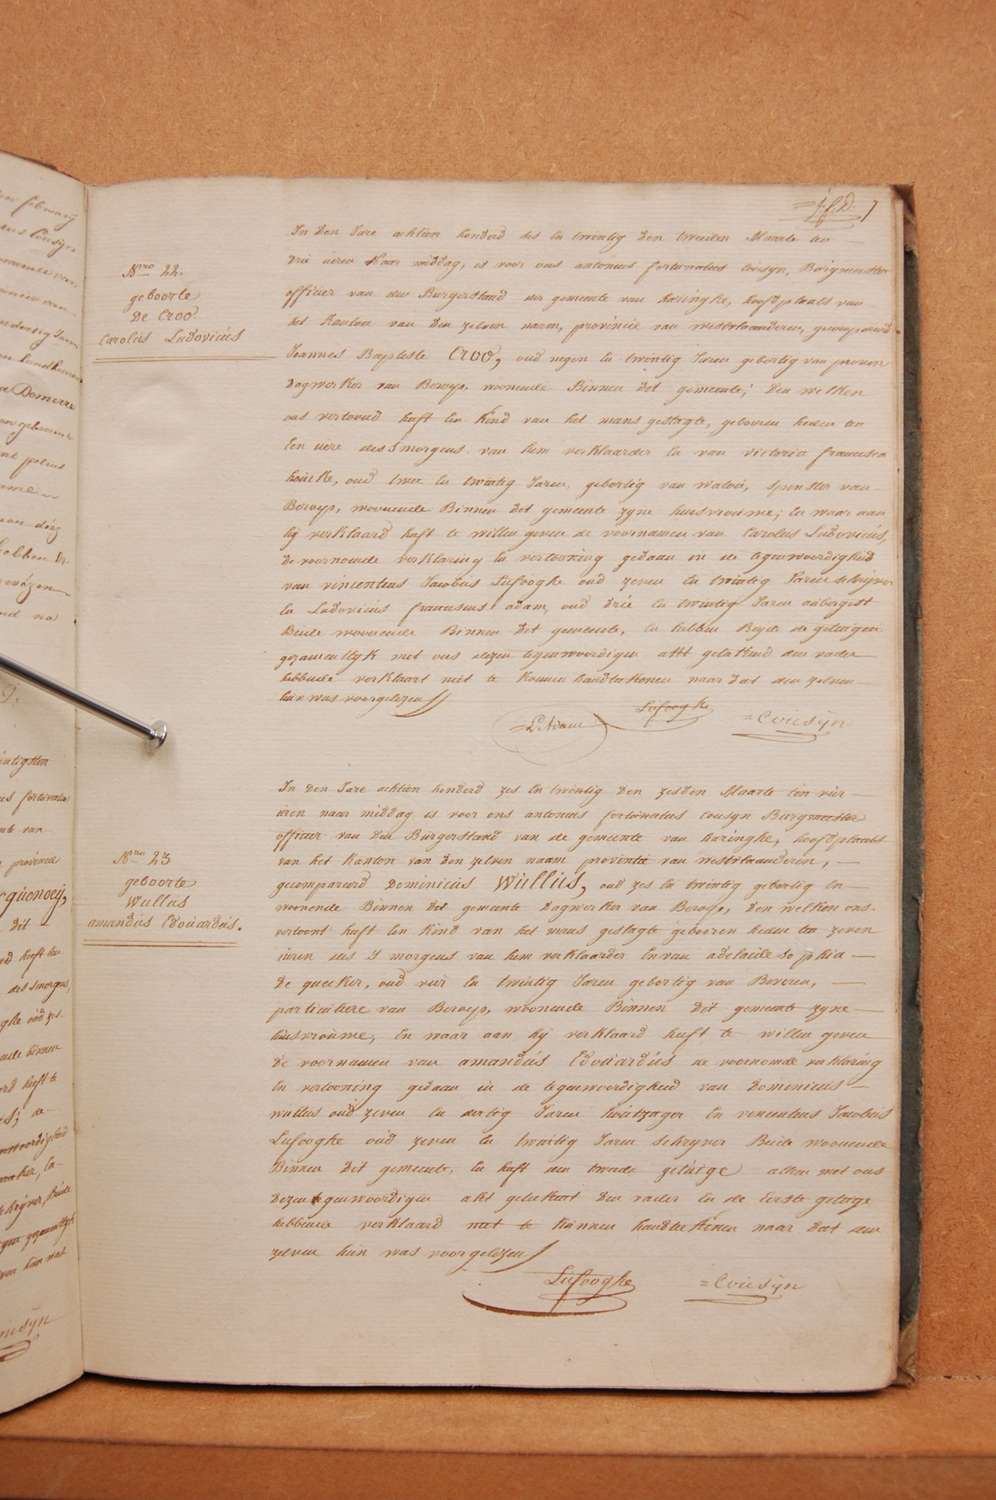 Nro 22.
geboorte
De Croo
Carolus Ludovicus
In den Jare achtien honderd ses en twintig den tweeden Maarte ten
drie uren naar middag, is voor ons antonius fortunatus Cousyn, Borgmeester
officier van den Burgerstand der gemeente van haringhe, hoofdplaats van
het Kanton van den zelven naam, provincie van westvlaanderen, gecompareerd
Joannes Baptiste Croo, oud negen en twintig Jaren gebortig van proven
Dagwerker van Beroep, woonende Binnen Dit gemeente; Den welken
ons vertoond heeft een Kind van het mans geslagte, geboren heden ten
een uere des Smorgens van hem verklaarder en van victoria francisca
, oud twee en twintig Jaren, gebortig van watou, spenster van
Beroep, woonende Binnen Dit gemeente zyne huisvrouwe; en waar aan
hy verklaard heeft te willen geven de voornamen van Carolus Ludovicus,
de voornoemde verklaring en vertooning gedaan in de tegenwoordigheid
van vincentius Jacobus Lufooghe oud zeven en twintig Jaren schryver
en Ludovicus franciscus adam, oud drie en twintig Jaren aubergist
Beide woonende Binnen Dit gemeente, en hebben Beyde de getuigen
gezamentlyk met ons dezen tegenwoordigen akt getekend den vader
hebbende verklaart niet te konnen handtekenen naar dat den zelven
hun was voorgelezen
L. Adam
Lufooghe
= Cousyn
Nro 23
geboorte
Wullus
amandus Edouardus.
In den Jare achtien honderd zes en twintig den zesden Maarte ten vier
uren naar middag is voor ons antonius fortunatus Cousyn Burgmeester
officier van den Burgerstand van de gemeente van haringhe, hoofdplaats
van het Kanton van den zelven naam provintie van westvlaanderen,
gecompareerd Dominicus Wullus, oud zes en twintig gebortig en
woonende Binnen Dit gemeente Dagwerker van Beroep, Den welken ons
vertoont heeft een Kind van het mans geslagte geboren heden ten zeven
uren des S'morgens van hem verklaarder en van adelaide Sophia
De quecker, oud vier en twintig Jaren gebortig van Beveren,
particuliere van Beroep, woonende Binnen Dit gemeente zyne
huisvrouwe, en waar aan hy verklaard heeft te willen geven
de voornamen van amandus Edouardus de voornoemde verklaring
en vertooning gedaan in de tegenwoordigheid van Dominicus
wullus oud zeven en dertig Jaren houtzager en vincentius Jacobus
Lufooghe oud zeven en twintig Jaren Schryver Beide woonende
Binnen Dit gemeente, en heeft den tweede getuige alleen met ons
dezen tegenwoordigen akt getekent den vader en de eerste getuige
hebbende verklaard niet te kunnen handtekenen naar dat den
zelven hun was voorgelezen
Lufooghe
= Cousyn